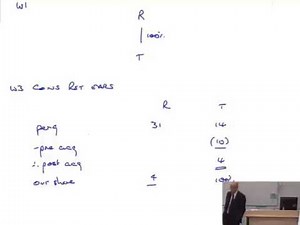 W1
R
100%
T
W3 CONS RET EARS
R T
per q 31 14
- pre acq (10)
∴ post acq 4
our share 4 100%